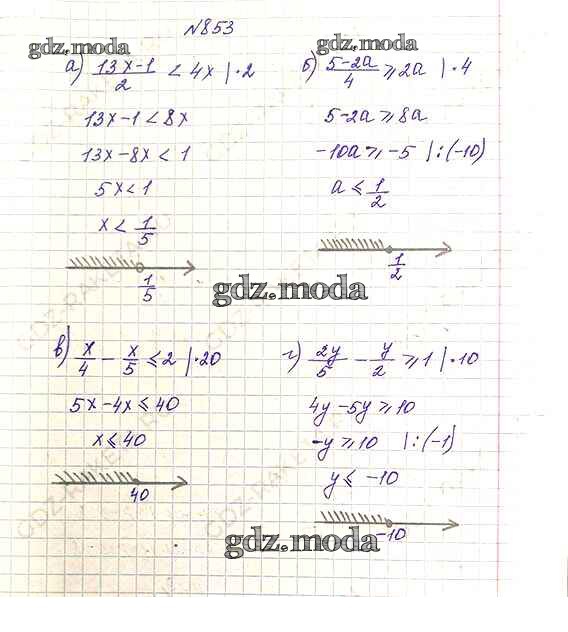 №853
gdz.moda
gdz.moda
а) (13x-1)/2 < 4x |·2
13x-1 < 8x
13x-8x < 1
5x < 1
x < 1/5
1/5
б) (5-2a)/4 ⩾ 2a |·4
5-2a ⩾ 8a
-10a ⩾ -5 |:(-10)
a ⩽ 1/2
1/2
gdz.moda
в) x/4 - x/5 ⩽ 2 |·20
5x-4x ⩽ 40
x ⩽ 40
40
г) 2y/5 - y/2 ⩾ 1 |·10
4y-5y ⩾ 10
-y ⩾ 10 |:(-1)
y ⩽ -10
-10
gdz.moda